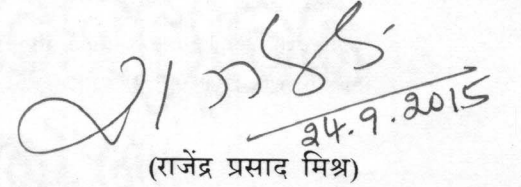 24.9.2015
(राजेंद्र प्रसाद मिश्र)